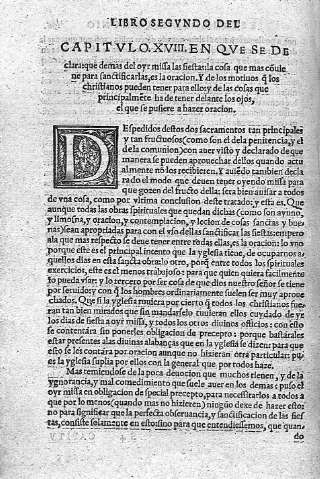 LIBRO SEGVNDO DEL
CAPITVLO.XVIII.EN QVE SE DE
clara:que demas del oyr missa las fiestas:la cosa que mas cõuie
ne para sanctificarlas,es la oracion.Y de los motiuos q̃ los
christianos pueden tener para ello:y de las cosas que
principalmẽte ha de tener delante los ojos,
el que se pusiere a hazer oracion.
DEspedidos destos dos sacramentos tan principales
y tan fructuosos(como son el de la penitencia,y el
de la comunion)con auer visto y declarado de que
manera se pueden aprouechar dellos quando actu
almente nõ los recibieren.Y auiẽdo tambien decla
rado el modo que deuen tener oyendo missa para
que gozen del fructo della: sera bien auisar a todos
de vna cosa, como por vltima conclusion deste tratado; y esta es. Que
aunque todas las obras spirituales que quedan dichas (como son ayuno,
y limosna,y oracion,y contemplacion,y lecion de cosas sanctas y bue
nas)sean apropriadas para con el vso dellas sanctificar las fiestas:empero
la que mas respecto se deue tener entre todas ellas,es la oracion: lo vno
porque este es el principal intento que la yglesia tiene, de ocuparnos a-
quellos dias en esta sancta obra:lo otro, porq̃ entre todos los spirituales
exercicios, este es el menos trabajoso: para que quien quiera facilmente
lo pueda vsar: y lo tercero por ser cosa de que dios nuestro señor se tiene
por seruido:y con q̃ los hombres ordinariamente suelen ser muy aproue
chados. Que si la yglesia tuuiera por cierto q̃ todos los christianos fue-
ran tan bien mirados que sin mandarselo tuuieran ellos cuydado de yr
los dias de fiesta a oyr missa, y todos los otros diuinos officios: con esto
se contentára sin ponerles obligacion de precepto: porque bastárales
estar presentes a las diuinas alabanças que en la yglesia se dizen para que
esso se les contára por oracion aunque no hizieran otra particular: pues
es la yglesia suplia por ellos con la general que por todos haze.
Mas temiendose de la poca deuocion que muchos tienen, y de la
ygnorancia,y mal comedimiento que suele auer en los demas: puso el
oyr missa en obligacion de special precepto,para necessitarlos a todos a
que por lo menos(quando mas no hizieren) ninguo dexe de hazer esto:
no para significar que la perfecta obseruancia,y sanctificacion de las fies
tas, consiste solamente en esto:sino para que entendiessemos, que quan-
do